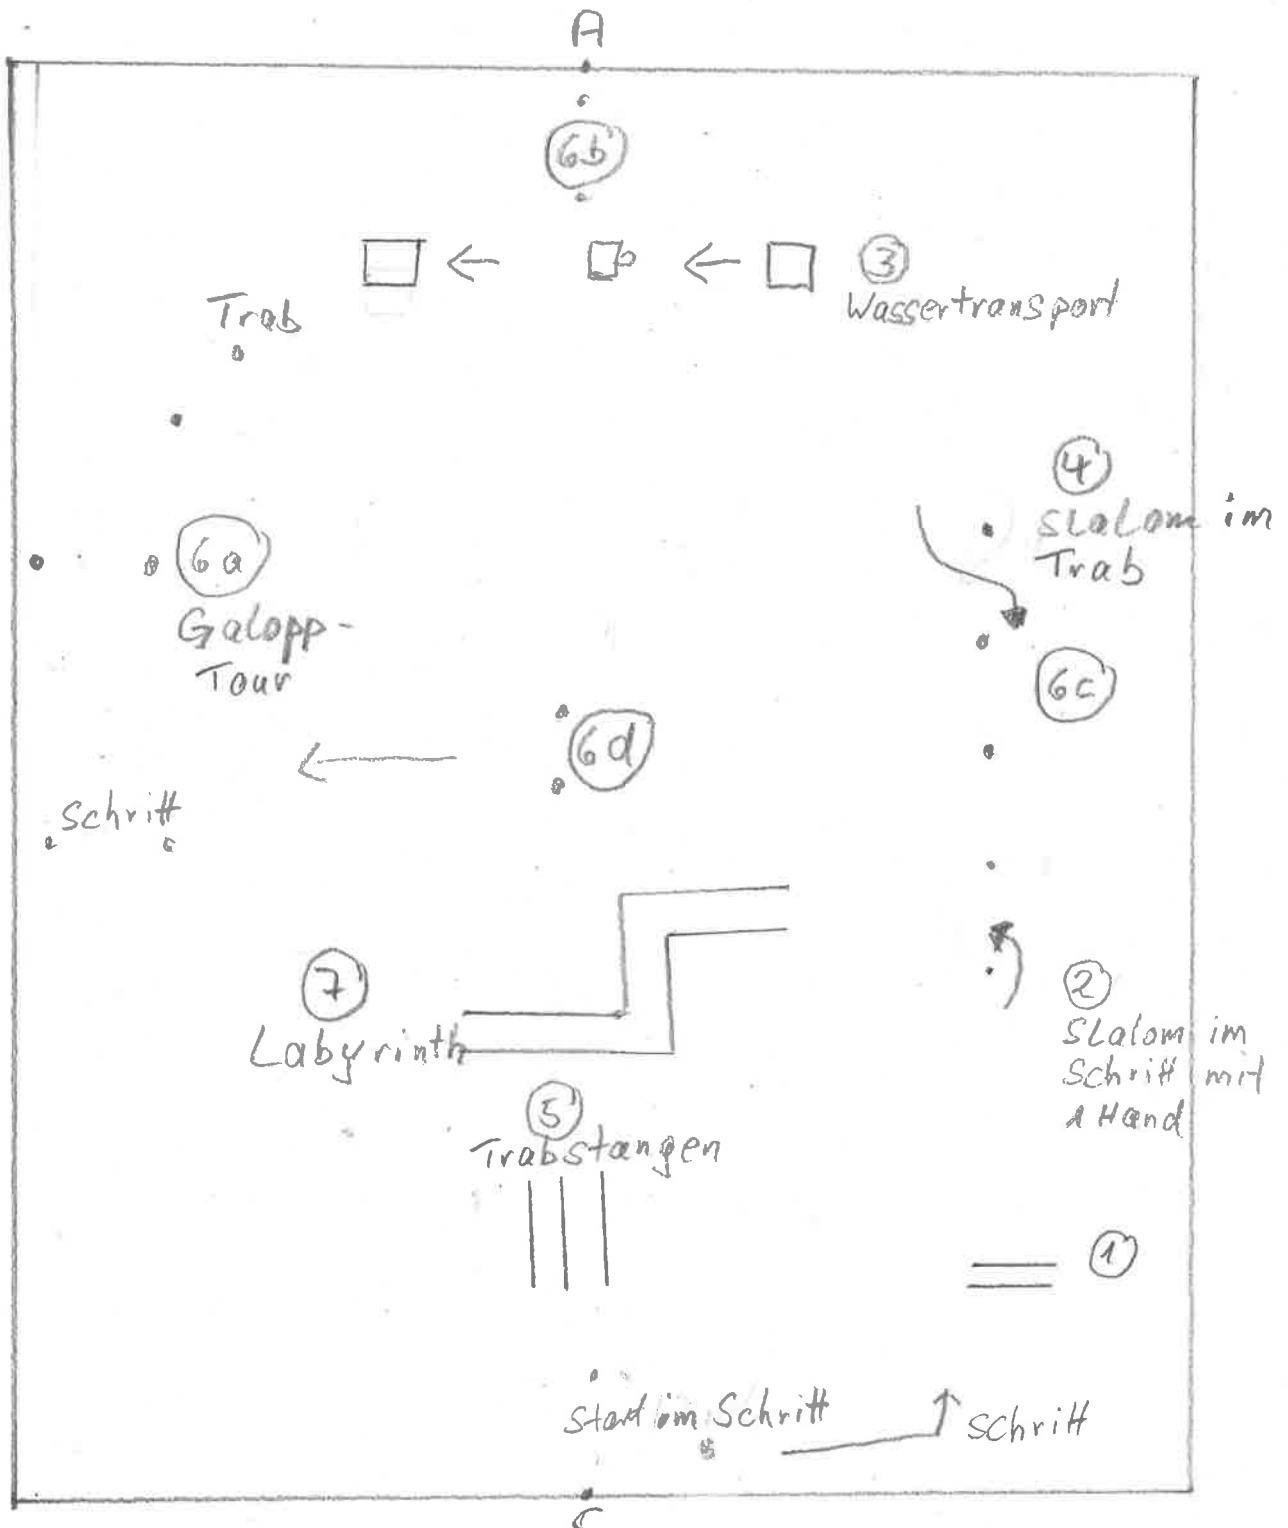 A
6b
3
Wassertransport
Trab
4
Slalom im
Trab
6a
Galopp-
Tour
6c
6d
Schritt
7
Labyrinth
2
Slalom im
Schritt mit
1 Hand
5
Trabstangen
1
Start im Schritt
Schritt
C